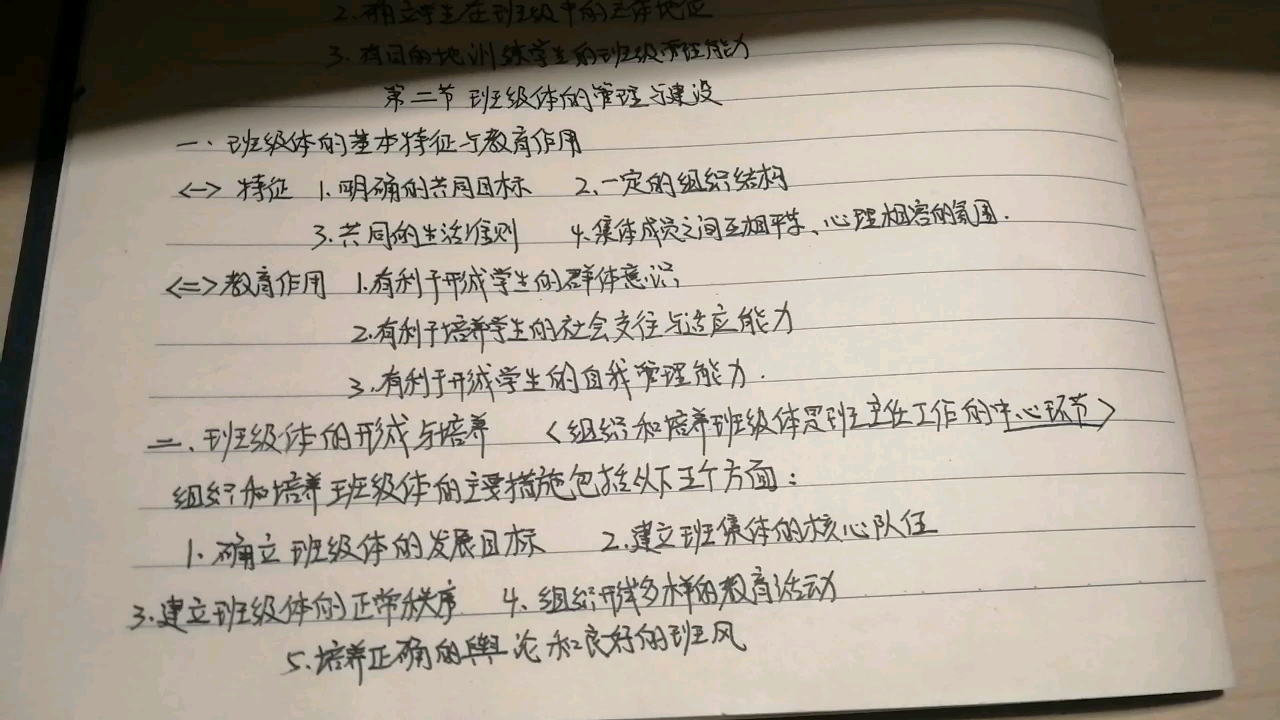 2. 确立学生在班级中的主体地位
3. 有目的地训练学生的班级管理能力
第二节 班级体的管理与建设
一、班级体的基本特征与教育作用
<一> 特征 1. 明确的共同目标 2. 一定的组织结构
3. 共同的生活准则 4. 集体成员之间互相平等、心理相容的氛围.
<二> 教育作用 1. 有利于形成学生的群体意识;
2. 有利于培养学生的社会交往与适应能力
3. 有利于形成学生的自我管理能力.
二、班级体的形成与培养 <组织和培养班级体是班主任工作的中心环节>
组织和培养班级体的主要措施包括以下五个方面:
1. 确立班级体的发展目标 2. 建立班集体的核心队伍
3. 建立班级体的正常秩序 4. 组织形式多样的教育活动
5. 培养正确的舆论和良好的班风